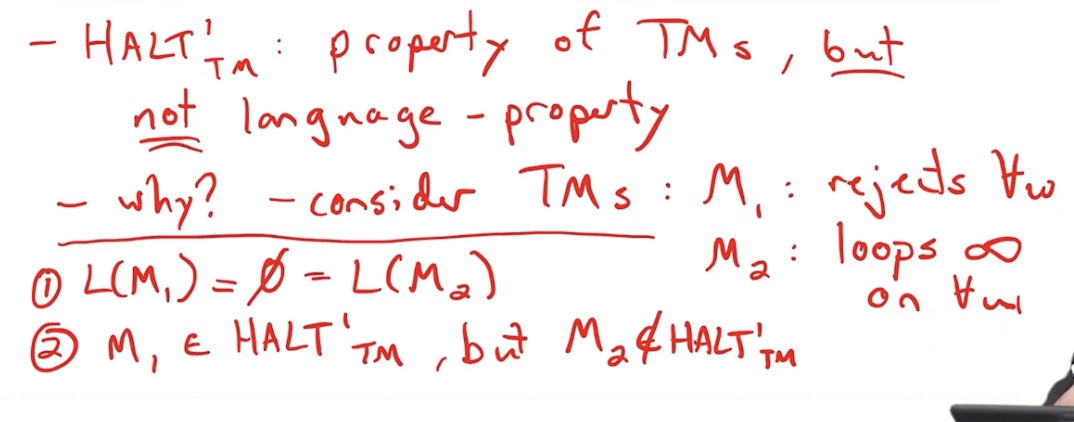 - HALT'TM : property of TMs, but
not language-property
- why? - consider TMs : M1 : rejects ∀w
M2 : loops ∞
on ∀w
① L(M1) = ∅ = L(M2)
② M1 ∈ HALT'TM, but M2 ∉ HALT'TM